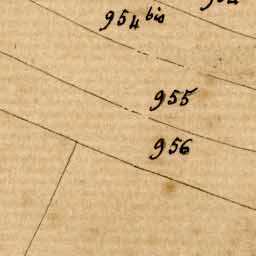 954 bis
955
956